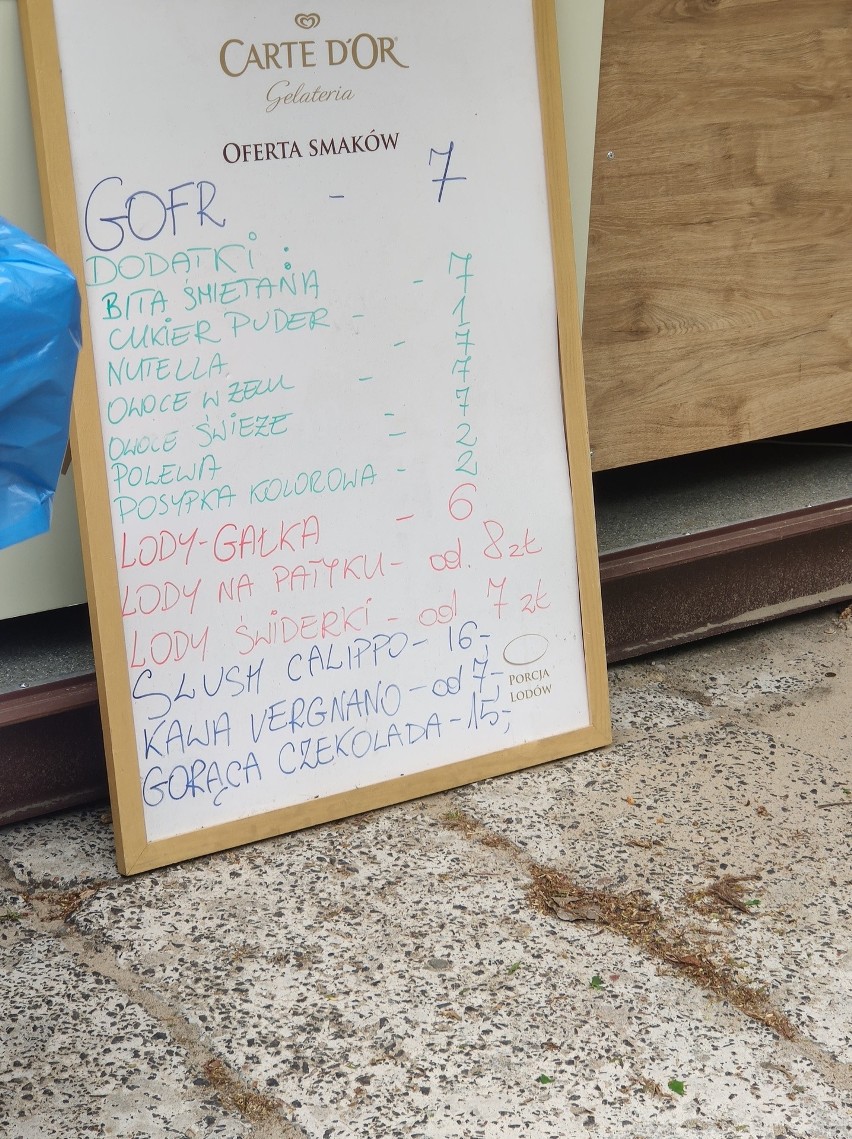 CARTE D'OR
Gelateria
OFERTA SMAKÓW
GOFR - 7
DODATKI :
BITA ŚMIETANA - 7
CUKIER PUDER - 1
NUTELLA - 7
OWOCE W ŻELU - 7
OWOCE ŚWIEŻE - 7
POLEWA - 2
POSYPKA KOLOROWA - 2
LODY-GAŁKA - 6
LODY NA PATYKU - od. 8 zł
LODY ŚWIDERKI - od 7 zł
SLUSH CALIPPO - 16,-
KAWA VERGNANO - od 7,-
GORĄCA CZEKOLADA - 15,-
PORCJA
LODÓW